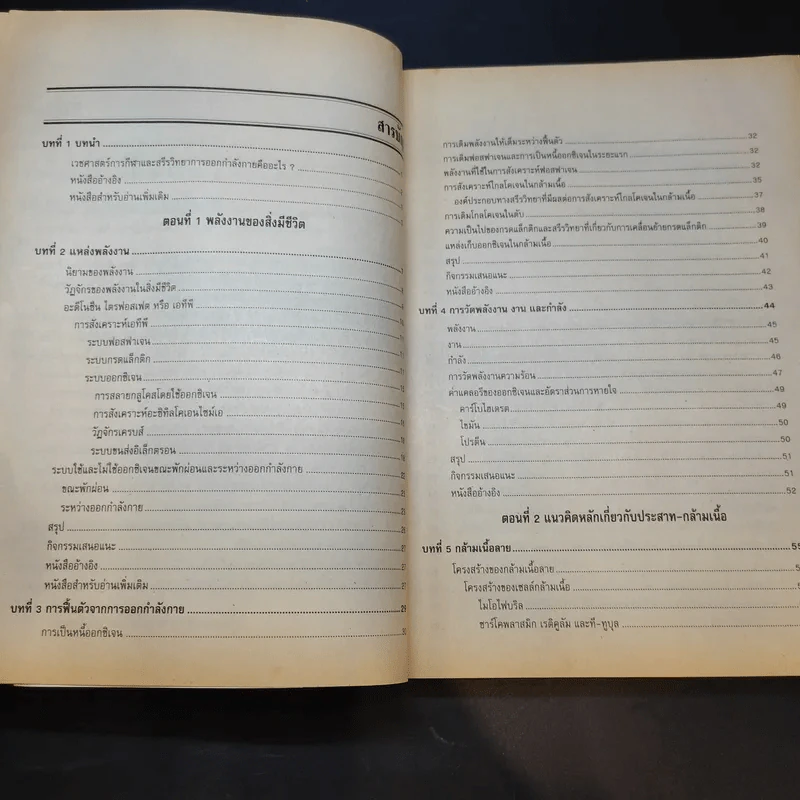 สารบั
บทที่ 1 บทนำ
เวชศาสตร์การกีฬาและสรีรวิทยาการออกกำลังกายคืออะไร ?
หนังสืออ้างอิง
หนังสือสำหรับอ่านเพิ่มเติม
ตอนที่ 1 พลังงานของสิ่งมีชีวิต
บทที่ 2 แหล่งพลังงาน
นิยามของพลังงาน
วัฏจักรของพลังงานในสิ่งมีชีวิต
อะดีโนซีน ไตรฟอสเฟต หรือ เอทีพี
การสังเคราะห์เอทีพี
ระบบฟอสฟาเจน
ระบบกรดแล็กติก
ระบบออกซิเจน
การสลายกลูโคสโดยใช้ออกซิเจน
การสังเคราะห์อะซิทิลโคเอนไซม์เอ
วัฏจักรเครบส์
ระบบขนส่งอิเล็กตรอน
ระบบใช้และไม่ใช้ออกซิเจนขณะพักผ่อนและระหว่างออกกำลังกาย
ขณะพักผ่อน
ระหว่างออกกำลังกาย
สรุป
กิจกรรมเสนอแนะ
หนังสืออ้างอิง
หนังสือสำหรับอ่านเพิ่มเติม
บทที่ 3 การฟื้นตัวจากการออกกำลังกาย 29
การเป็นหนี้ออกซิเจน 30
การเติมพลังงานให้เต็มระหว่างฟื้นตัว 32
การเติมฟอสฟาเจนและการเป็นหนี้ออกซิเจนในระยะแรก 32
พลังงานที่ใช้ในการสังเคราะห์ฟอสฟาเจน 32
การสังเคราะห์ไกลโคเจนในกล้ามเนื้อ 35
องค์ประกอบทางสรีรวิทยาที่มีผลต่อการสังเคราะห์ไกลโคเจนในกล้ามเนื้อ 37
การเติมไกลโคเจนในตับ 38
ความเป็นไปของกรดแล็กติกและสรีรวิทยาที่เกี่ยวกับการเคลื่อนย้ายกรดแล็กติก 39
แหล่งเก็บออกซิเจนในกล้ามเนื้อ 40
สรุป 41
กิจกรรมเสนอแนะ 42
หนังสืออ้างอิง 43
บทที่ 4 การวัดพลังงาน งาน และกำลัง 44
พลังงาน 45
งาน 45
กำลัง 46
การวัดพลังงานความร้อน 47
ค่าแคลอรีของออกซิเจนและอัตราส่วนการหายใจ 49
คาร์โบไฮเดรต 49
ไขมัน 50
โปรตีน 50
สรุป 51
กิจกรรมเสนอแนะ 51
หนังสืออ้างอิง 52
ตอนที่ 2 แนวคิดหลักเกี่ยวกับประสาท-กล้ามเนื้อ
บทที่ 5 กล้ามเนื้อลาย 55
โครงสร้างของกล้ามเนื้อลาย
โครงสร้างของเซลล์กล้ามเนื้อ
ไมโอไฟบริล
ซาร์โคพลาสมิก เรติคูลัม และที-ทูบุล